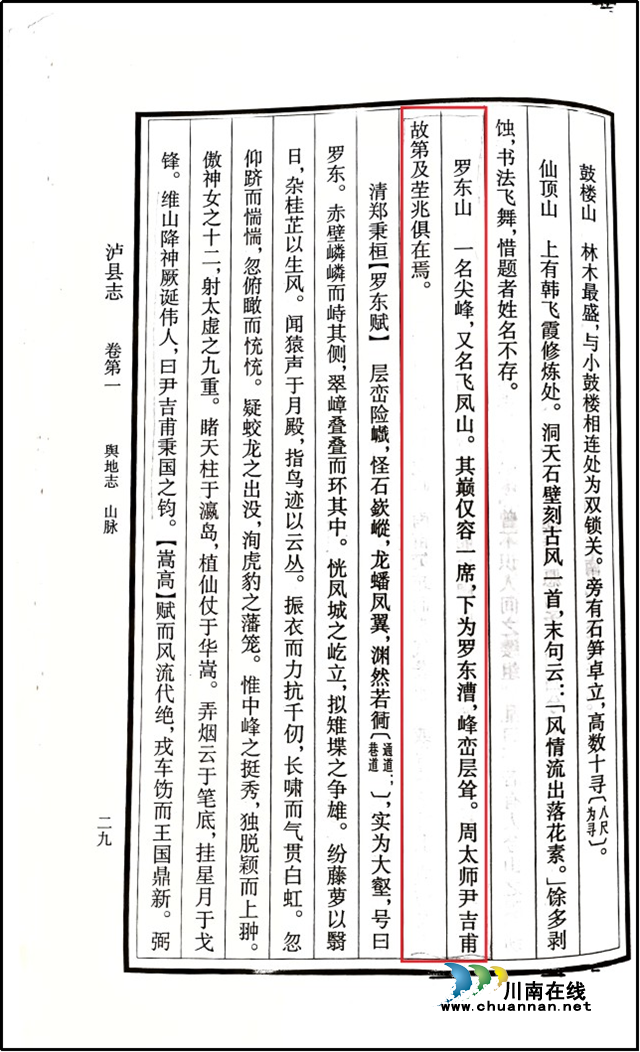 鼓楼山　林木最盛，与小鼓楼相连处为双锁关。旁有石笋卓立，高数十寻〔八尺为寻〕。
仙顶山　上有韩飞霞修炼处。洞天石壁刻古风一首，末句云：「风情流出落花素。」馀多剥
蚀，书法飞舞，惜题者姓名不存。
罗东山　一名尖峰，又名飞凤山。其巅仅容一席，下为罗东漕，峰峦层耸。周太师尹吉甫
故第及茔兆俱在焉。
清郑秉桓【罗东赋】　层峦险巇，怪石嵚嵷，龙蟠凤翼，渊然若衕〔通道；巷道〕，实为大壑，号曰
罗东。赤壁嶙嶙而峙其侧，翠嶂叠叠而环其中。恍凤城之屹立，拟雉堞之争雄。纷藤萝以翳
日，杂桂芷以生风。闻猿声于月殿，指鸟迹以云丛。振衣而力抗千仞，长啸而气贯白虹。忽
仰跻而惴惴，忽俯瞰而恍恍。疑蛟龙之出没，洵虎豹之藩笼。惟中峰之挺秀，独脱颖而上翀。
傲神女之十二，射太虚之九重。睹天柱于瀛岛，植仙仗于华嵩。弄烟云于笔底，挂星月于戈
锋。维山降神厥诞伟人，曰尹吉甫秉国之钧。【嵩高】赋而风流代绝，戎车饬而王国鼎新。弼
泸县志　卷第一　舆地志　山脉
二九
川南在线
www.chuannan.net